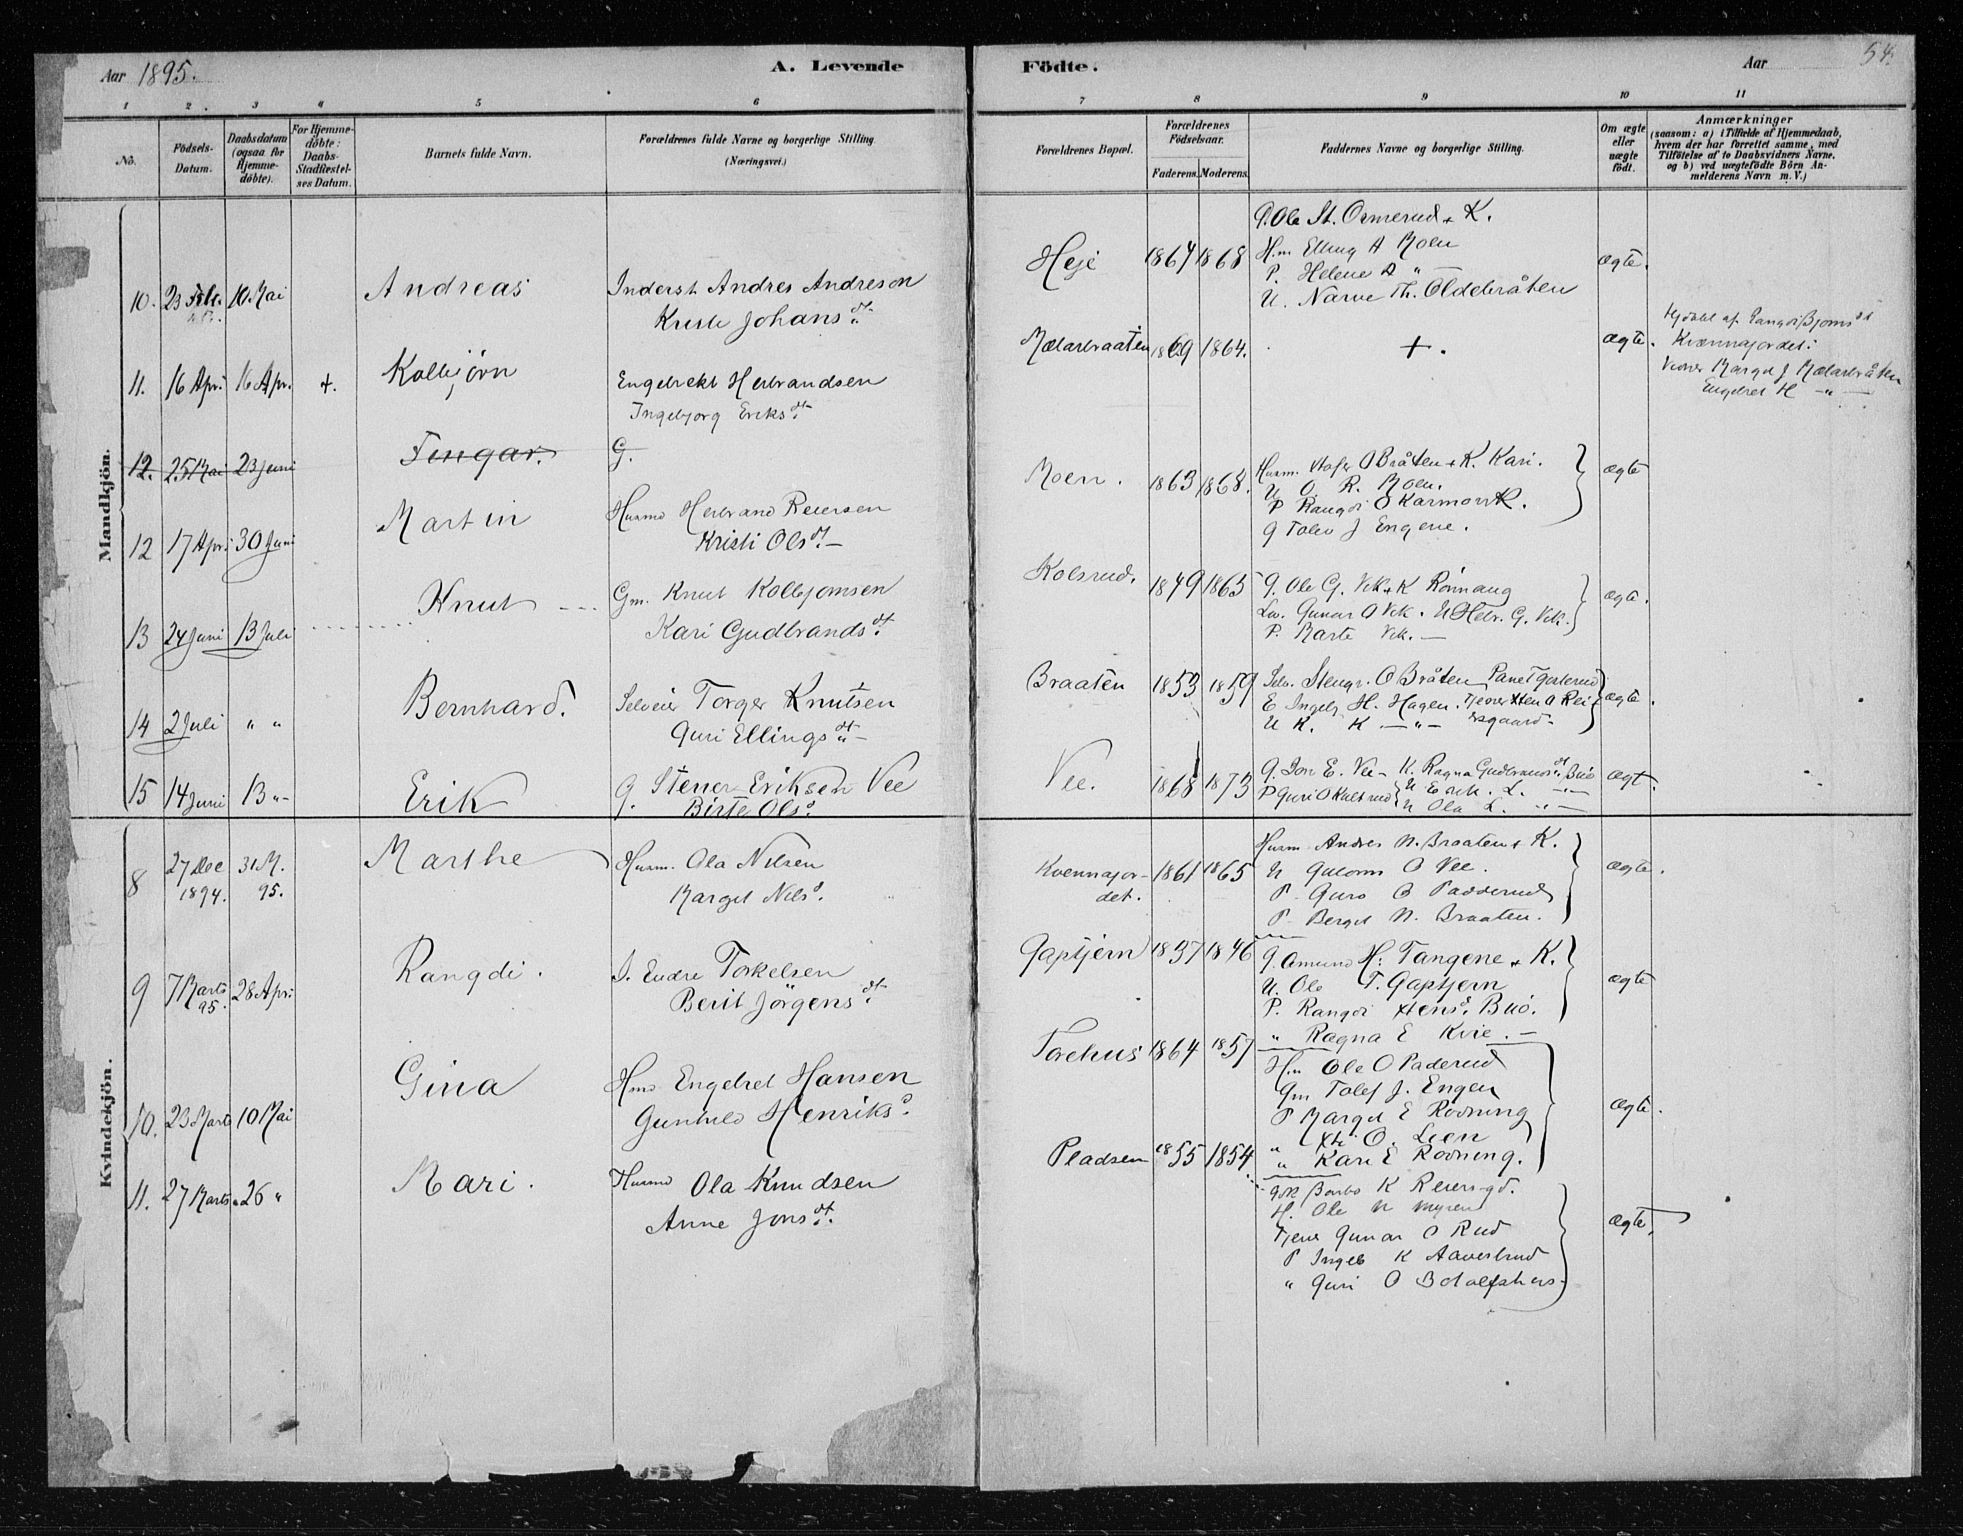 Aar 1895. A. Levende
Födte. Aar 54.
1 2 3 4 5 6
7 8 9 10 11
No.
Födsels-
Datum.
Daabsdatum
(ogsaa for
Hjemme-
döbte).
For Hjemme-
döbte:
Daabs-
Stadfæstel-
ses Datum.
Barnets fulde Navn.
Forældrenes fulde Navne og borgerlige Stilling
(Næringsvei.)
Forældrenes Bopæl.
Forældrenes
Födselsaar.
Faderens. Moderens.
Faddernes Navne og borgerlige Stilling.
Om ægte
eller
uægte
födt.
Anmærkninger
(saasom: a) i Tilfælde af Hjemmedaab,
hvem der har forrettet samme, med
Tilföielse af to Daabsvidners Navne,
og b) ved uægtefödte Börn An-
melderens Navn m. V.)
Mandkjön.
10. 23 Feb. 10 Mai Andreas Inderst Andres Andreson
Kristi Johans dt.
Heje 1864 1868 ægte.
G. Ole St. Ormerud + K.
Hm Elling A Moen
P. Helene A " —
U. Narve Th. Oldebråten
11. 16 Apri 16 Apr. +. Kolbjörn Engebrekt Herbrandsen
Ingebjorg Eriks dt.
Mælarbraaten 1869 1864. +. ægte.
Hjdöbt af Rangdi Bjorns dt
Kvænnajordet:
Margit J Mælarbråten
Engebret H — " —
12. 25 Mai 23 Juni Tingar. G.
12 17 Apri 30 Juni Martin Husmd Herbrand Reiersen
Kristi Ols dt. —
Moen. 1863 1868. ægte
Husm. Olafr O Bråten + K. Kari.
U O. R. Moen.
P Rangdi O Skarmoen
G Tolev J Engene.
13 24 Juni 13 Juli Knut Gm. Knut Kolbjornsen
Kari Gudbrands dt.
Kolsrud. 1849 1863 ægte.
G. Ole G. Vik + K Rönnaug
Gunar O Vik. U Helv. G. Vik.
P. Marte Vik. —
14 2 Juli " " Bernhard. Selveier Torger Knutsen
Guri Ellings dt —
Braaten 1853 1859 ægte.
Selv. Stengr. O Bråten
E Ingeb H. Hagen.
U K. K — " —
15 14 Juni 13 " Erik G. Stener Eriksen Vee
Birte Ols d.
Vee. 1868 1873 ægt.
G. Jon E. Vee — K. Ragna Gudbrands dt. Buö
P Guri O Kolsrud U Erik. L. — " —
U Ola L. — " —
Kvindekjön.
8 27 Dec 1894. 31 M. 95. Marthe Husm. Ola Nilsen
Margit Nils d.
Kvennajor-
det. 1861 1865 ægte.
Husm Andres N. Braaten + K.
U Guttorm O Vee.
P. Guro O Padderud
P. Bergit N. Braaten.
9 7 Marts 95. 28 Apri Rangdi. I. Endre Torkelsen
Berit Jörgens dt.
Gaptjern 1837 1846 ægte
G. Amund H. Tangene + K.
U. Ole T. Gaptjern
P. Rangdi Stens d. Buö.
" Ragna E Kvie. —
10. 23 Marts 10 Mai Gina Hmd Engebret Hansen
Gunhild Henriks d.
Torehus 1864 1857 ægte.
Hm Ole O Paderud
Gm Tolef J. Engen
P Margit E Rovning
" O. Lien
" Kari E Rovning.
11. 27 Marts 26 " Mari. Husmd Ola Knudsen
Anne Jons dt.
Pladsen 1855 1854 ægte.
K Reiersgd.
H. Ole N Myren
Tjener Gunar O Rud
P Ingeb K Aaverbrud
" Guri O Botolfshus